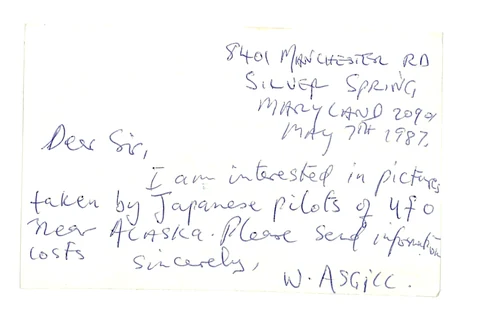 8401 MANCHESTER RD
SILVER SPRING,
MARYLAND 20901
MAY 7TH 1987.
Dear Sir,
I am interested in pictures
taken by Japanese pilots of UFO
near ALASKA. Please send information
costs sincerely,
W. ASGILL.